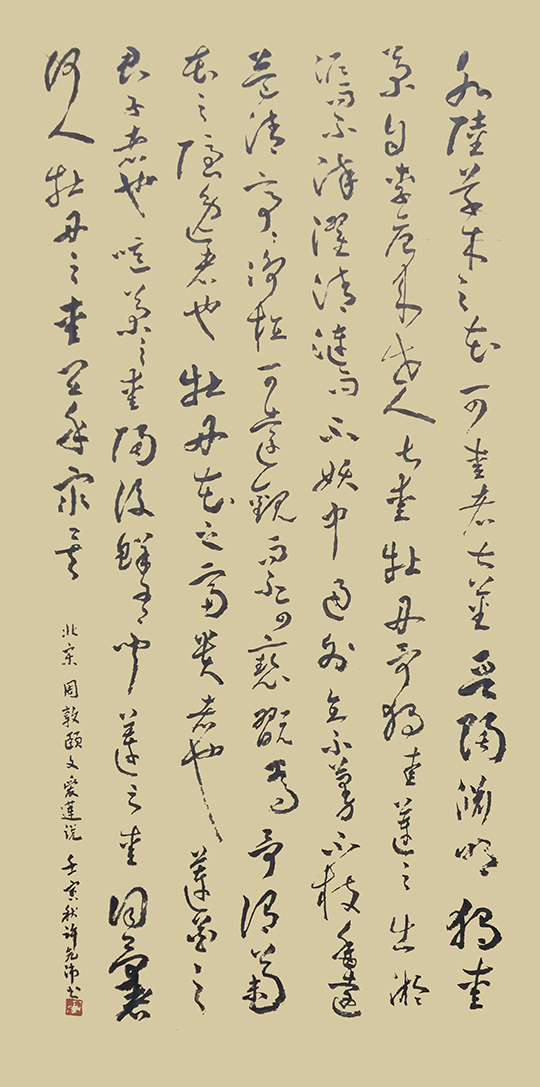 水陸草木之花可愛者甚蕃晉陶淵明獨愛
菊自李唐來世人甚愛牡丹予獨愛蓮之出淤
泥而不染濯清漣而不妖中通外直不蔓不枝香遠
益清亭亭淨植可遠觀而不可褻翫焉予謂菊
花之隱逸者也牡丹花之富貴者也蓮花之
君子者也噫菊之愛陶後鮮有聞蓮之愛同予者
何人牡丹之愛宜乎眾矣
北宋 周敦頤文愛蓮説 壬寅秋許